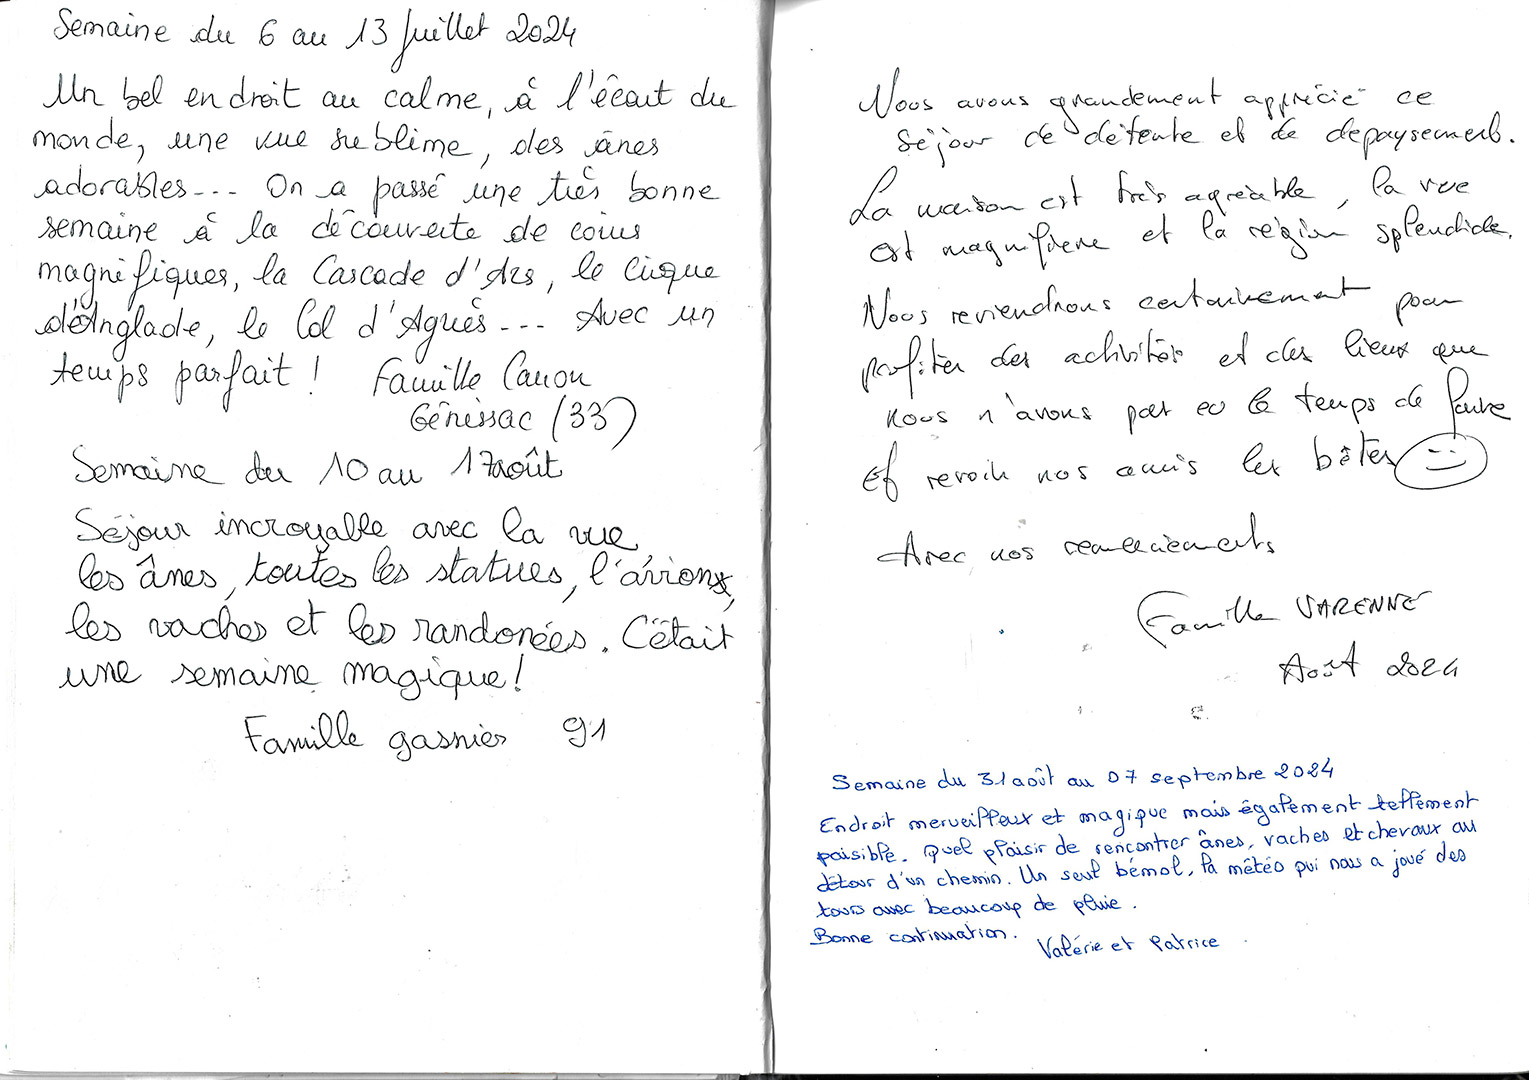 Semaine du 6 au 13 Juillet 2024
Un bel endroit au calme, à l'écart du
monde, une vue sublime, des ânes
adorables... On a passé une très bonne
semaine à la découverte de coins
magnifiques, la Cascade d'Ars, le Cirque
d'Anglade, le Col d'Agnès... Avec un
temps parfait ! Famille Canon
Génissac (33)
Semaine du 10 au 17 août
Séjour incroyable avec la vue
les ânes, toutes les statues, l'avion,
les vaches et les randonées. C'était
une semaine magique!
Famille gasnier 91
Nous avons grandement apprécié ce
séjour de détente et de depaysement.
La maison est très agréable, la vue
est magnifique et la région splendide.
Nous reviendrons certainement pour
profiter des activités et des lieux que
nous n'avons pas eu le temps de faire
Et revoir nos amis les bêtes
Avec nos remerciements
Famille VARENNE
Août 2024
Semaine du 31 août au 07 septembre 2024
Endroit merveilleux et magique mais également tellement
paisible. Quel plaisir de rencontrer ânes, vaches et chevaux au
détour d'un chemin. Un seul bémol, la météo qui nous a joué des
tours avec beaucoup de pluie.
Bonne continuation.
Valérie et Patrice